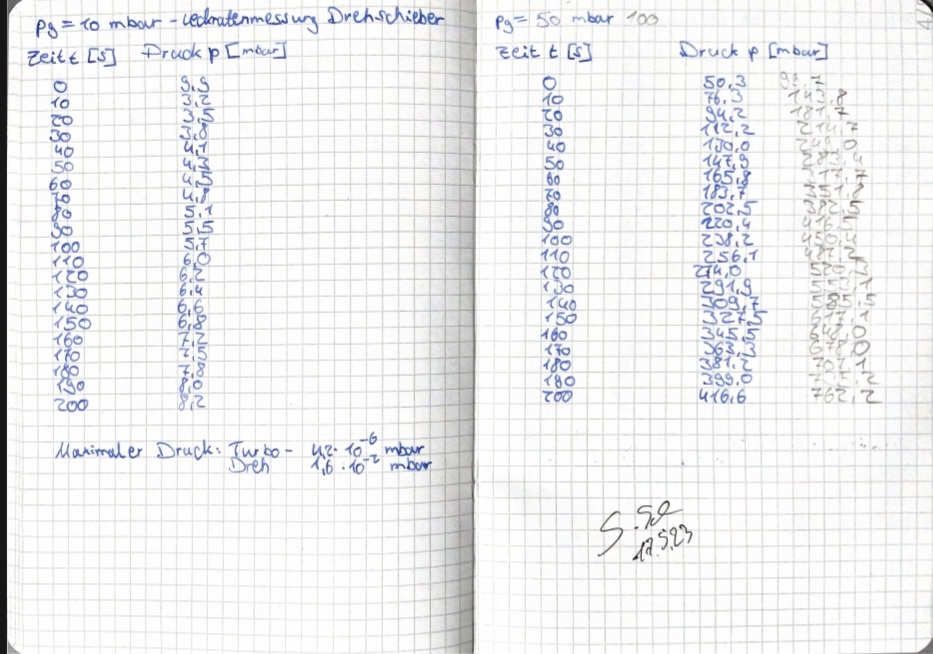 pg = 10 mbar - Leckratenmessung Drehschieber
Zeit t [s] Druck p [mbar]
0 9,9
10 3,2
20 3,5
30 3,8
40 4,1
50 4,3
60 4,5
70 4,8
80 5,1
90 5,5
100 5,7
110 6,0
120 6,2
130 6,4
140 6,6
150 6,8
160 7,2
170 7,5
180 7,8
190 8,0
200 8,2
Maximaler Druck: Turbo - 4,2 · 10⁻⁶ mbar
Dreh 1,6 · 10⁻² mbar
pg = 50 mbar 100
Zeit t [s] Druck p [mbar]
0 50,3
10 76,3 143,8
20 94,2 181,7
30 112,2 214,7
40 130,0
50 147,9
60 165,8
70 183,7
80 202,5
90 220,4 416,5
100 238,2 450,4
110 256,1 487,2
120 274,0
130 291,9
140 309,7 585,5
150 327,5 617,1
160 345,5
170 363,3
180 381,2
190 399,0
200 416,6 762,2
17.5.23